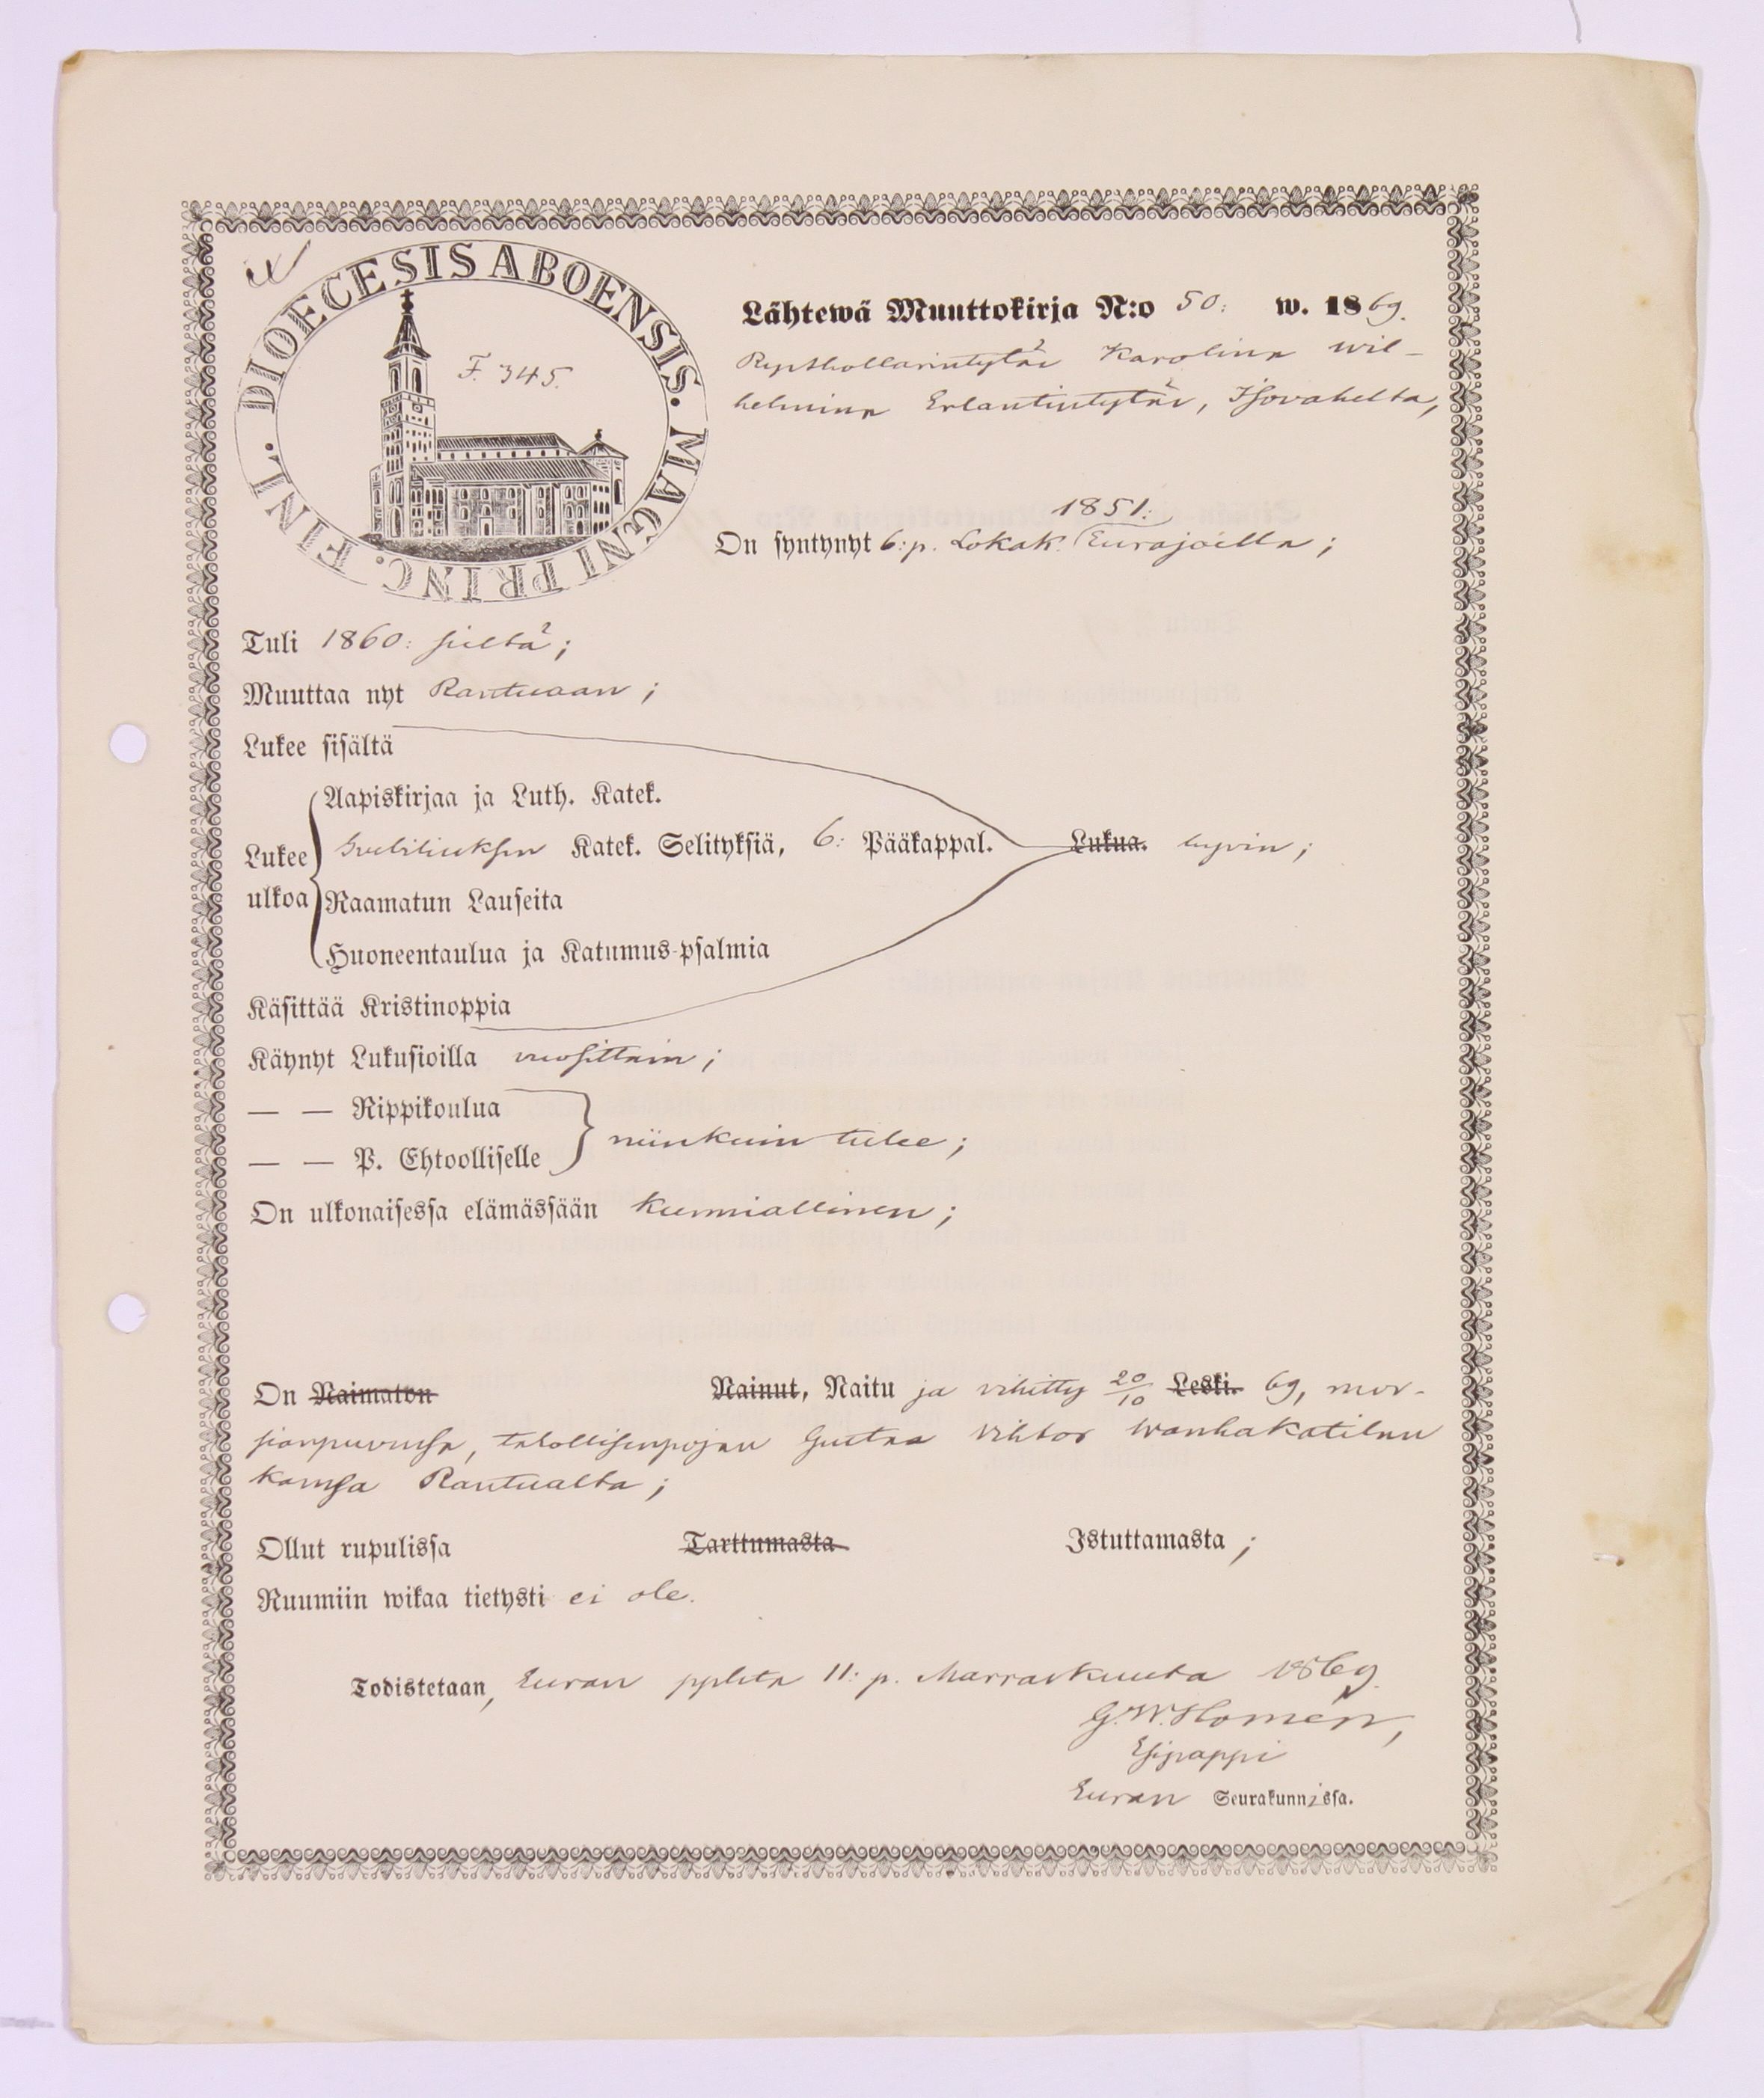 DIOECESIS ABOENSIS. MAGNI PRINC. FINL.
F. 345.
Lähtewä Muuttokirja N:o 50: w. 1869.
Rusthollarintytär Karolina Wil-
helmina Erlantintytär, Isovahelta,
1851:
On syntynyt 6:p. Lokak. Eurajoella;
Tuli 1860: sieltä;
Muuttaa nyt Rantuaan;
Lukee sisältä
Aapiskirjaa ja Luth. Katek.
Lukee Svebiliuksen Katek. Selityksiä, 6: Pääkappal. Lukua. hyvin;
ulkoa Raamatun Lauseita
Huoneentaulua ja Katumus-psalmia
Käsittää Kristinoppia
Käynyt Lukusioilla vuosittain;
— — Rippikoulua
niinkuin tulee;
— — P. Ehtoolliselle
On ulkonaisessa elämässään kunniallinen;
On Naimaton Nainut, Naitu ja vihitty 20/10 Leski. 69, mor-
sianpuvussa, talollisenpojan Gustaa Vihtor Wanhakatilan
kanssa Rantualta;
Ollut rupulissa Tarttumasta Istuttamasta;
Ruumiin wikaa tietysti ei ole.
Todistetaan, Euran 11: p. Marraskuuta 1869.
G. W. Homén,
Esipappi
Euran Seurakunnissa.